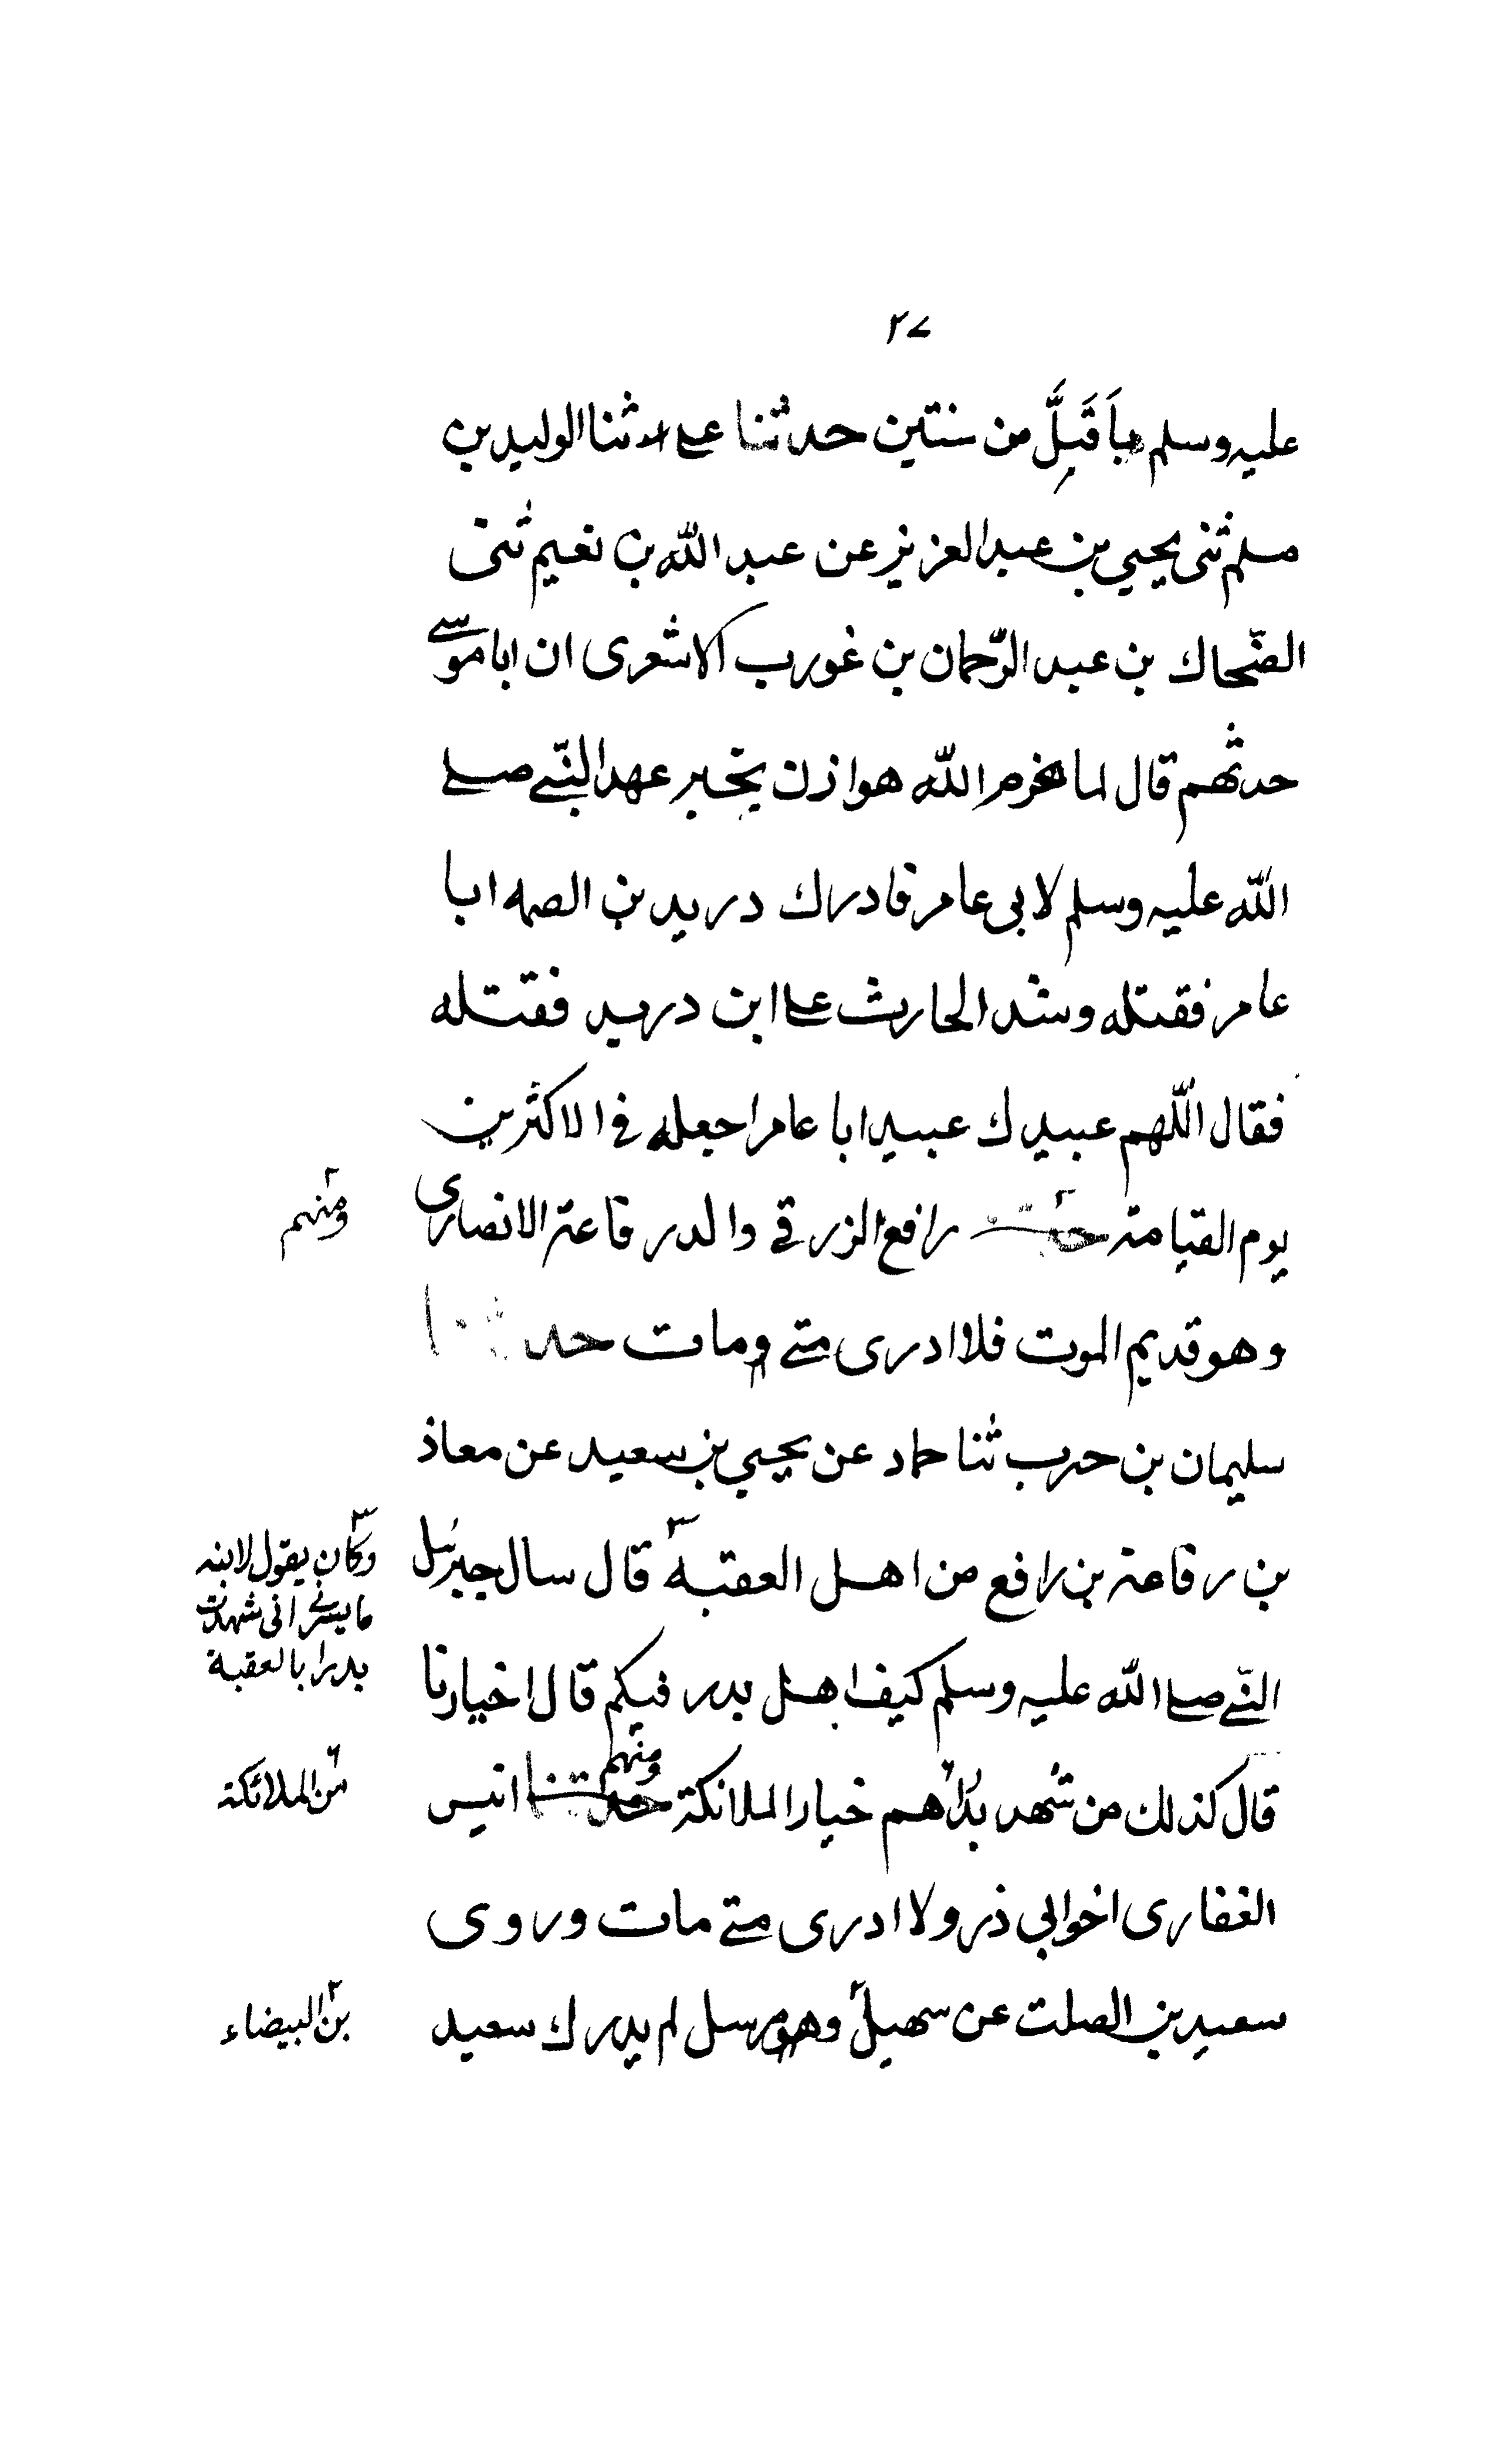 ٢٧
عليه وسلم باَقَبِلَّ من سنتين حدثنا على ثنا الوليد بن
مسلم ثنى يحيي بن عبد العزيز عن عبد الله بن نعيم ثنى
الضّحاك بن عبد الرّحمان بن غورب الاشعرى ان ابا موسے
حدثهم قال لما هزم الله هوازن بخيبر عهد النّبے صلے
الله عليه وسلم لابى عامر فادرك دريد بن الصمه ابا
عامر فقتله وشد الحارث علے ابن دريد فقتله
فقال اللّهم عبيدك عبيد ابا عامر اجعله فى الاكثرين
يوم القيامة رافع الزرقے والد رفاعة الانصارى
ومنهم
وهو قديم الموت فلا ادرى متے ومات حدثنا
سليمان بن حرب ثنا حماد عن يحيي بن سعيد عن معاذ
بن رفاعة بن رافع من اهل العقبه قال سال جبرئيل
وكان يقول لابنه
ما يسرنے انى شهدت
بدرا بالعقبة
النّبے صلے الله عليه وسلم كيف اهل بدر فيكم قال اخيارنا
قال كذلك من شهد بدرا هم خيار الملائكة ومنهم انيس
من الملائكة
الغفارى اخو ابي ذر ولا ادرى متے مات وروى
سعيد بن الصلت عن سهيل وهو مرسل لم يدرك سعيد
بن البيضاء